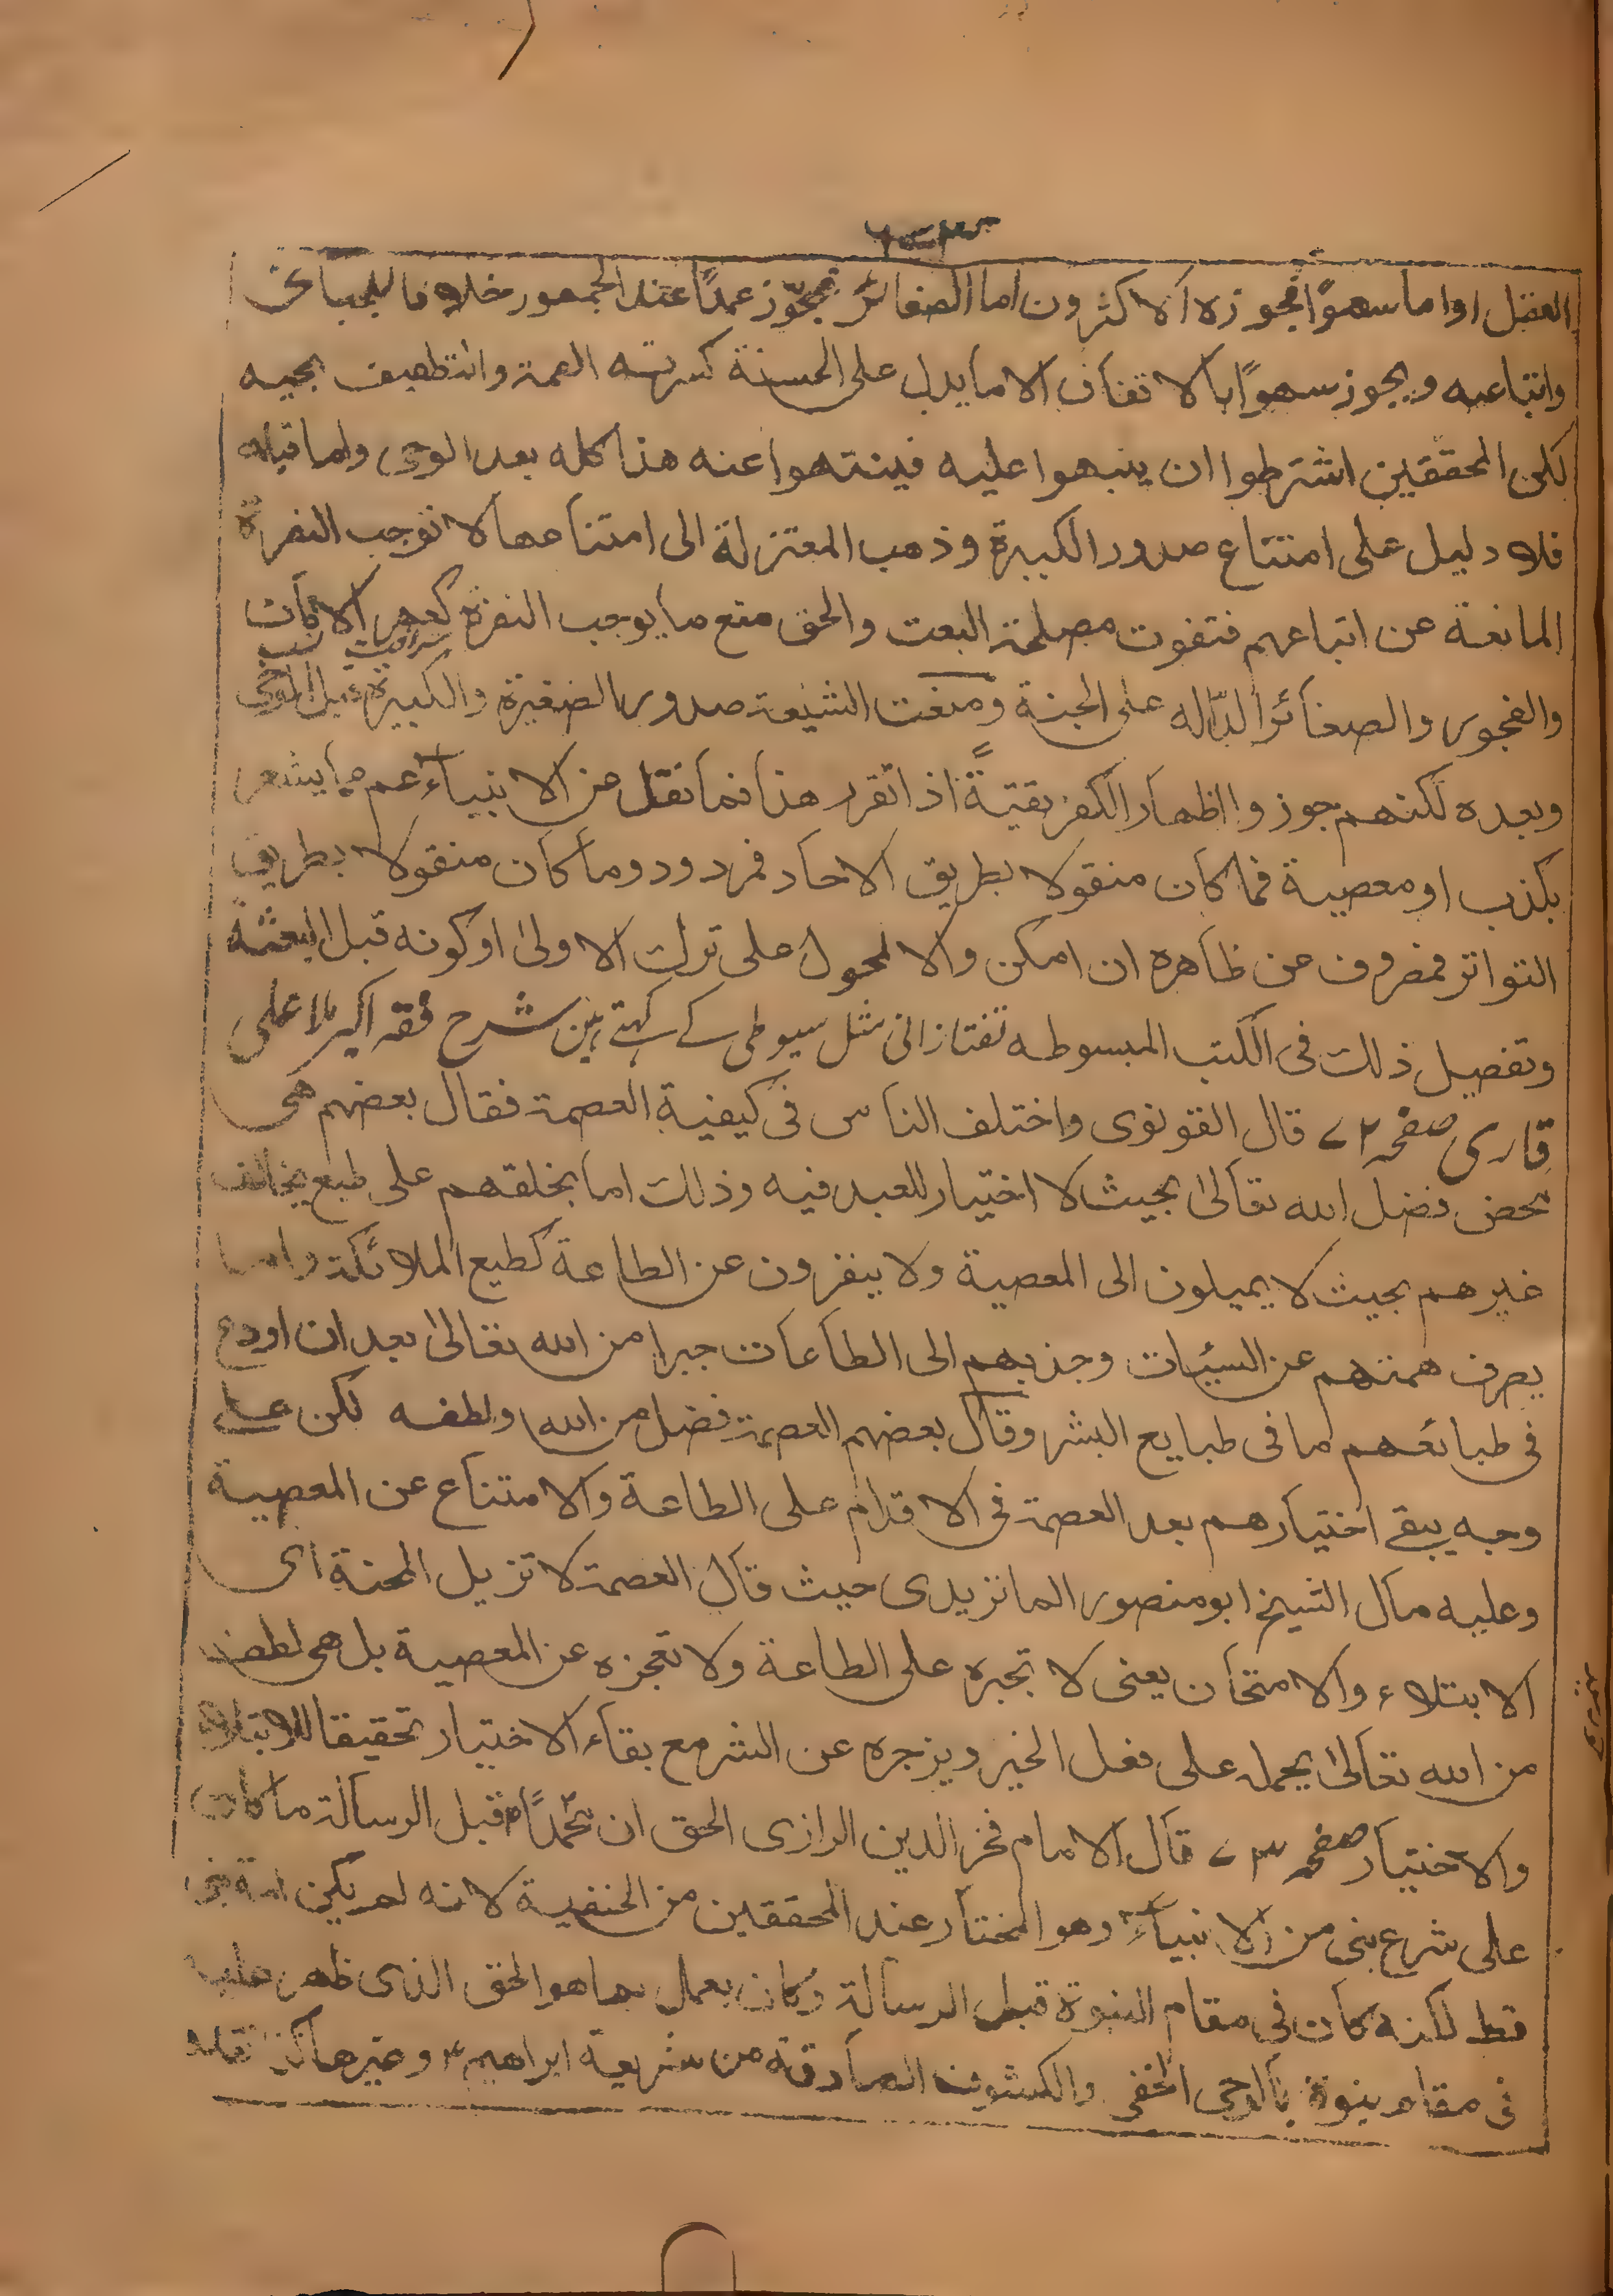 العقل اواما سهوًا فجوزه الاكثرون اما الصغائر تجوّز عمدًا عند الجمهور خلافا للجبائى
واتباعه ويجوز سهوًا بالاتفاق الا ما يدل على الخسة كسرقة لقمة والتطفيف بحبه
لكن المحققين اشترطوا ان ينبهوا عليه فينتهوا عنه هذا كله بعد الوحى واما قبله
فلا دليل على امتناع صدور الكبيرة وذهب المعتزلة الى امتناعها لانوجب النفرة
المانعة عن اتباعهم فتفوت مصلحة البعث والحق منع ما يوجب النفرة كعهر الامهات
والفجور والصغائر الدّاله على الخسة ومنعت الشيعة صدور الصغيرة والكبيرة قبل الوحى
وبعده لكنهم جوزوا اظهار الكفر تقيةً اذا تقرر هذا فما نقل عن الانبياء عم مما يشعر
بكذب او معصية فما كان منقولا بطريق الاحاد فمردود وما كان منقولا بطريق
التواتر فمصروف عن ظاهره ان امكن والا لمحمول على ترك الاولى او كونه قبل البعثة
وتفصيل ذلك فى الكتب المبسوطه تفتازانى مثل سيوطى كے کہتے ہین شرح فقہ اکبر ملا على
قارى صفحہ ۷۲ قال القونوى واختلف الناس فى كيفية العصمة فقال بعضهم هى
محض فضل الله تعالى بحيث لا اختيار للعبد فيه وذلك اما بخلقهم على طبع يخالف
غيرهم بحيث لا يميلون الى المعصية ولا ينفرون عن الطاعة كطبع الملائكة واما
بصرف همتهم عن السيئات وجذبهم الى الطاعات جبرا من الله تعالى بعد ان اودع
فى طبائعهم ما فى طبايع البشر وقال بعضهم العصمة فضل من الله ولطفه لكن على
وجه يبقى اختيارهم بعد العصمة فى الاقدام على الطاعة والامتناع عن المعصية
وعليه مال الشيخ ابو منصور الماتريدى حيث قال العصمة لا تزيل المحنة اى
الابتلاء والامتحان يعنى لا تجبره على الطاعة ولا تعجزه عن المعصية بل هى لطف
من الله تعالى يحمله على فعل الخير ويزجره عن الشر مع بقاء الاختيار تحقيقا للابتلاء
والاختيار صفحہ ۷۳ قال الامام فخر الدين الرازى الحق ان محمدًا قبل الرسالة ما كان
على شرع نبى من الانبياء وهو المختار عند المحققين من الحنفية لانه لم يكن امة نبى
قط لكنه كان فى مقام النبوة قبل الرسالة وكان يعمل بما هو الحق الذى ظهر عليه
فى مقام نبوة بالوحى الخفى والكشوف الصادقة من شريعة ابراهيم وغيرها كذا نقله